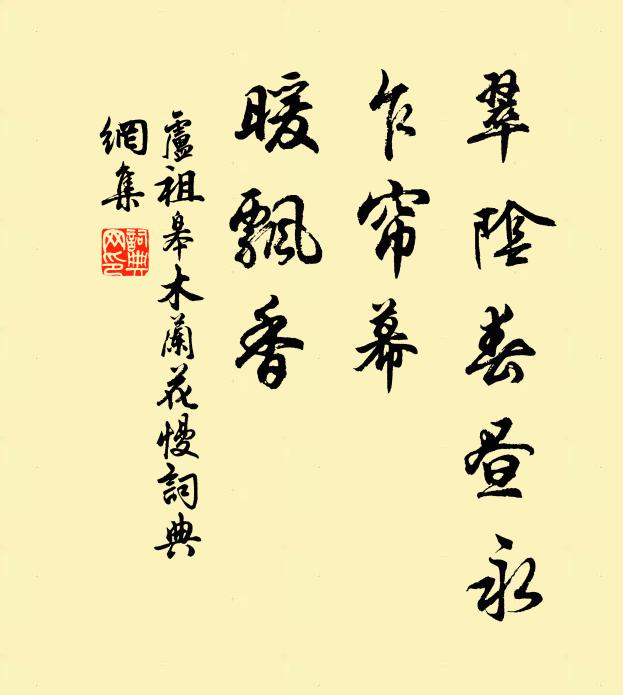 翠陰春昼永
乍帘幕
暖飄香
盧祖皋木蘭花慢詞典
網集
詞典網印